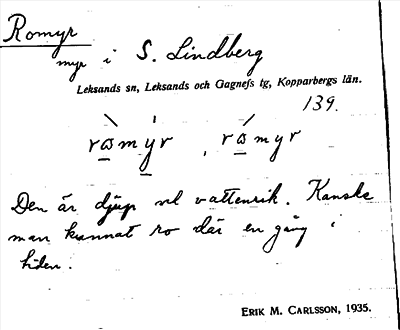 Romyr
myr i S. Lindberg
Leksands sn, Leksands och Gagnefs tg, Kopparbergs län.
139.
rωmyr, rωmyr
Den är djup vattenrik. Kanske
man kunnat ro där en gång i
tiden.
ERIK M. CARLSSON, 1935.